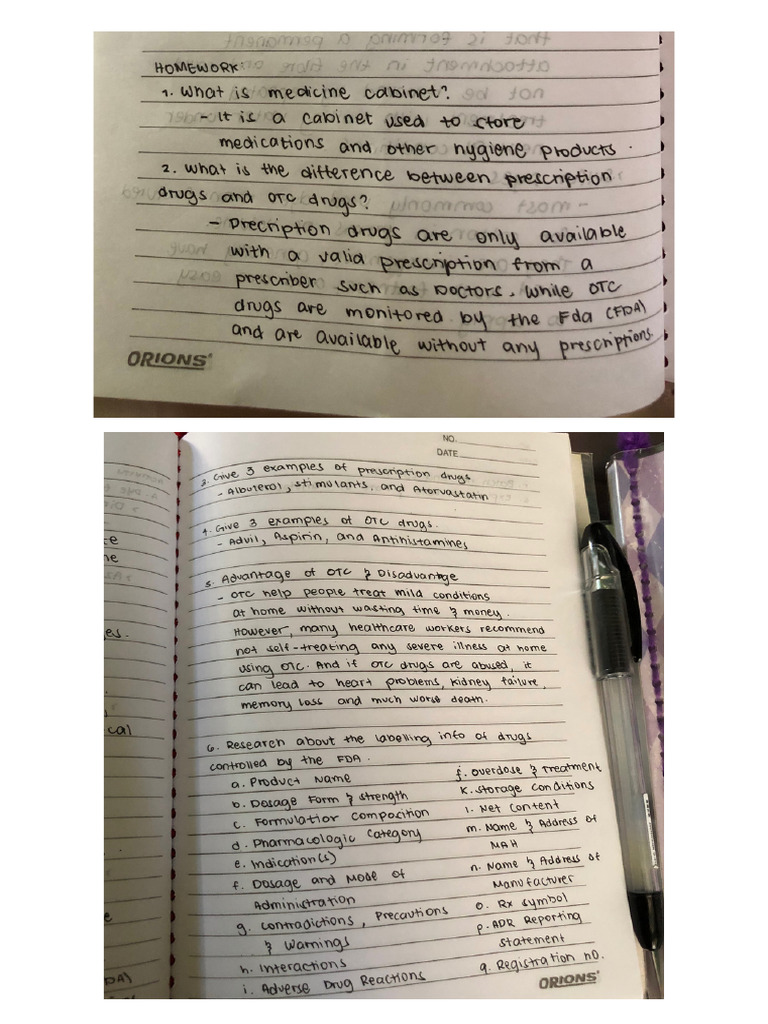 HOMEWORK:
1. What is medicine cabinet?
- It is a cabinet used to store
medications and other hygiene products.
2. What is the difference between prescription
drugs and OTC drugs?
- Precription drugs are only available
with a valid prescription from a
prescriber such as Doctors. While OTC
drugs are monitored by the Fda (FDA)
and are available without any prescriptions.
ORIONS
NO.
DATE
3. Give 3 examples of prescription drugs
- Albuterol, stimulants, and Atorvastatin
4. Give 3 examples of OTC drugs.
- Advil, Aspirin, and Antihistamines
5. Advantage of OTC & Disadvantage
- OTC help people treat mild conditions
at home without wasting time & money.
However, many healthcare workers recommend
not self-treating any severe illness at home
using OTC. And if OTC drugs are abused, it
can lead to heart problems, kidney failure,
memory loss and much worse death.
6. Research about the labelling info of drugs
controlled by the FDA.
a. Product Name
b. Dosage Form & strength
c. Formulation composition
d. Pharmacologic Category
e. Indication(s)
f. Dosage and Mode of
Administration
g. Contradictions, Precautions
& Warnings
h. Interactions
i. Adverse Drug Reactions
j. Overdose & Treatment
k. Storage Conditions
l. Net Content
m. Name & Address of
MAH
n. Name & Address of
Manufacturer
o. Rx symbol
p. ADR Reporting
Statement
q. Registration no.
ORIONS
es.
cal
DA)